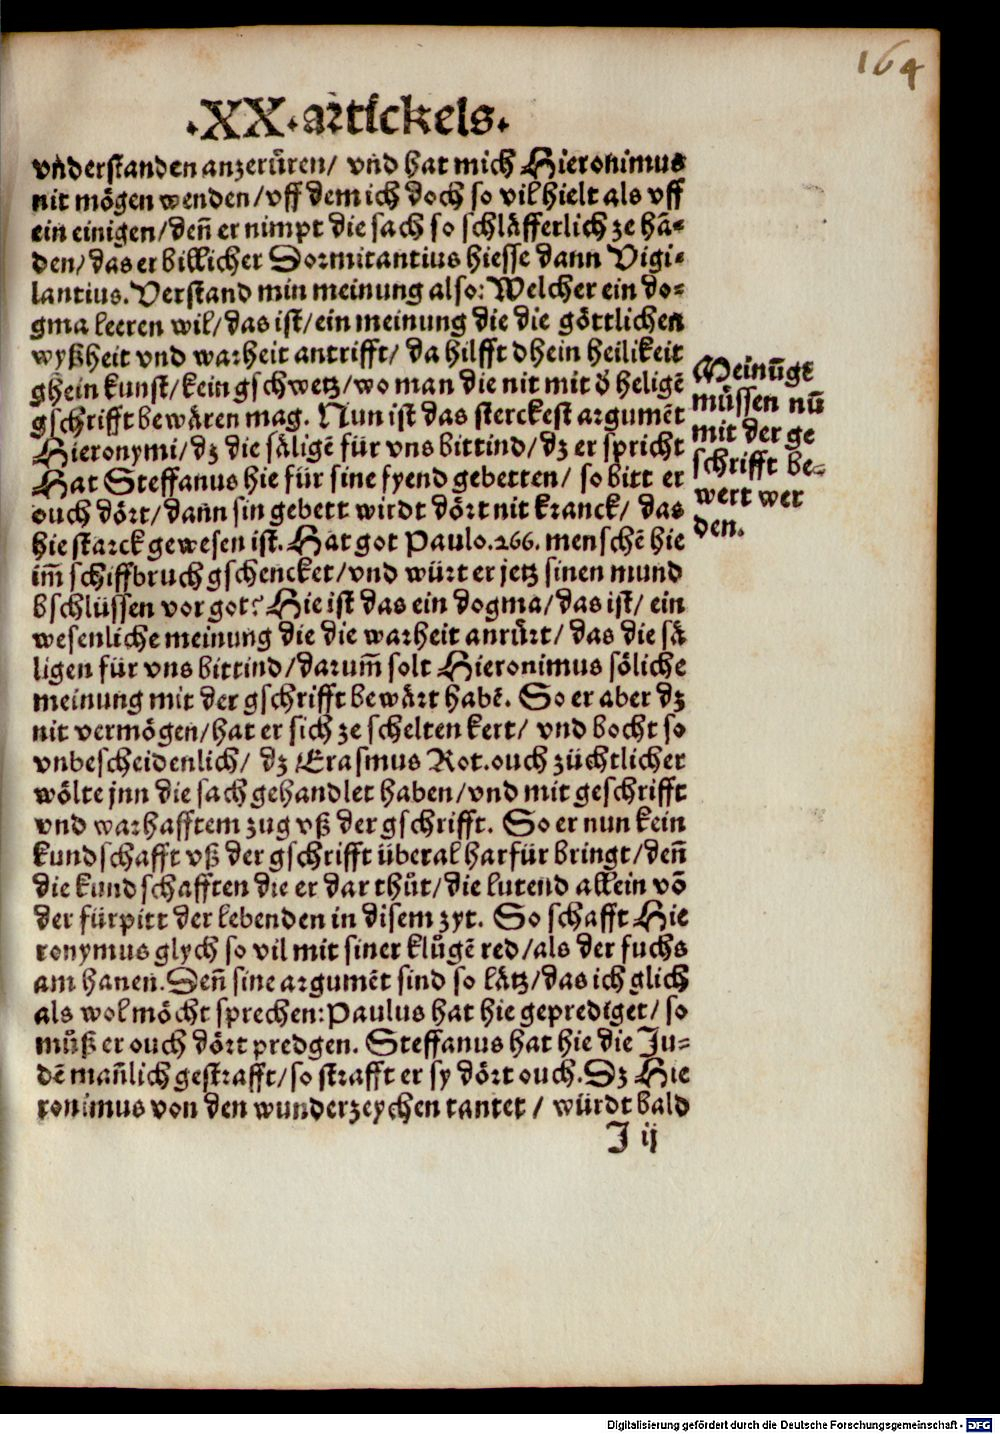 164
.XX.artickels.
vnderstanden anzerůren/ vnd hat mich Hieronimus
nit mögen wenden/vff dem ich doch so vil hielt als vff
ein einigen/deñ er nimpt die sach so schläfferlich ze hā-
den/das er billicher Dormitantius hiesse dann Vigi-
lantius.Verstand min meinung also: Welcher ein do-
gma leeren wil/das ist/ein meinung die die göttlichen
wyßheit vnd warheit antrifft/ da hilfft dhein heilikeit
ghein kunst/kein gschwetz/wo man die nit mit ď heligē
gschrifft bewären mag. Nun ist das sterckest argumēt
Hieronymi/dz die säligē für vns bittind/dz er spricht
Hat Steffanus hie für sine fyend gebetten/ so bitt er
ouch dört/dann sin gebett wirdt dört nit kranck/ das
hie starck gewesen ist. Hat got Paulo.266. menschē hie
im̄ schiffbruch gschencket/vnd würt er jetz sinen mund
bschlüssen vor got? Hie ist das ein dogma/das ist/ ein
wesenliche meinung die die warheit anrůrt/ das die sä
ligen für vns bittind/darum̄ solt Hieronimus söliche
meinung mit der gschrifft bewärt habē. So er aber dz
nit vermögen/hat er sich ze schelten kert/ vnd bocht so
vnbescheidenlich/ dz Erasmus Rot.ouch züchtlicher
wölte jnn die sach gehandlet haben/vnd mit geschrifft
vnd warhafftem zug vß der gschrifft. So er nun kein
kundschafft vß der gschrifft überal harfür bringt/deñ
die kundschafften die er dar thůt/die lutend allein vō
der fürpitt der lebenden in disem zyt. So schafft Hie
ronymus glych so vil mit siner klůgē red/als der fuchs
am hanen.Deñ sine argumēt sind so lätz/das ich glich
als wol möcht sprechen:Paulus hat hie geprediget/ so
můß er ouch dört predgen. Steffanus hat hie die Ju-
dē mañlich gestrafft/so strafft er sy dört ouch.Dz Hie
ronimus von den wunderzeychen tantet / würdt bald
J ij
Meinūgē
müssen nū
mit der ge
schrifft be-
wert wer
den.
Digitalisierung gefördert durch die Deutsche Forschungsgemeinschaft - DFG